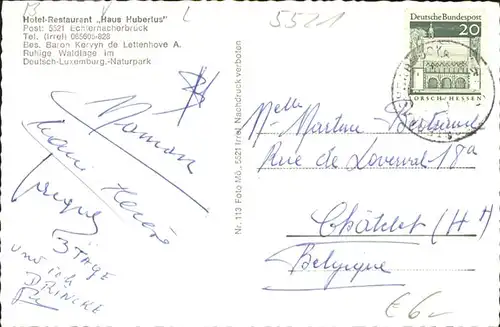 B V L
5521
Hotel-Restaurant „Haus Hubertus"
Post: 5521 Echternacherbrück
Tel. (Irrel) 065605-828
Bes. Baron Kervyn de Lettenhove A.
Ruhige Waldlage im
Deutsch-Luxemburg.-Naturpark
Deutsche Bundespost
20
LORSCH/HESSEN
Maman
3 TAGE
und ich
DRINCKE
Nr. 113 Foto Mö., 5521 Irrel Nachdruck verboten
Melle Martine Bertrand
Rue de Loverval 18a
Châtelet (Ht)
Belgique
€ 6-